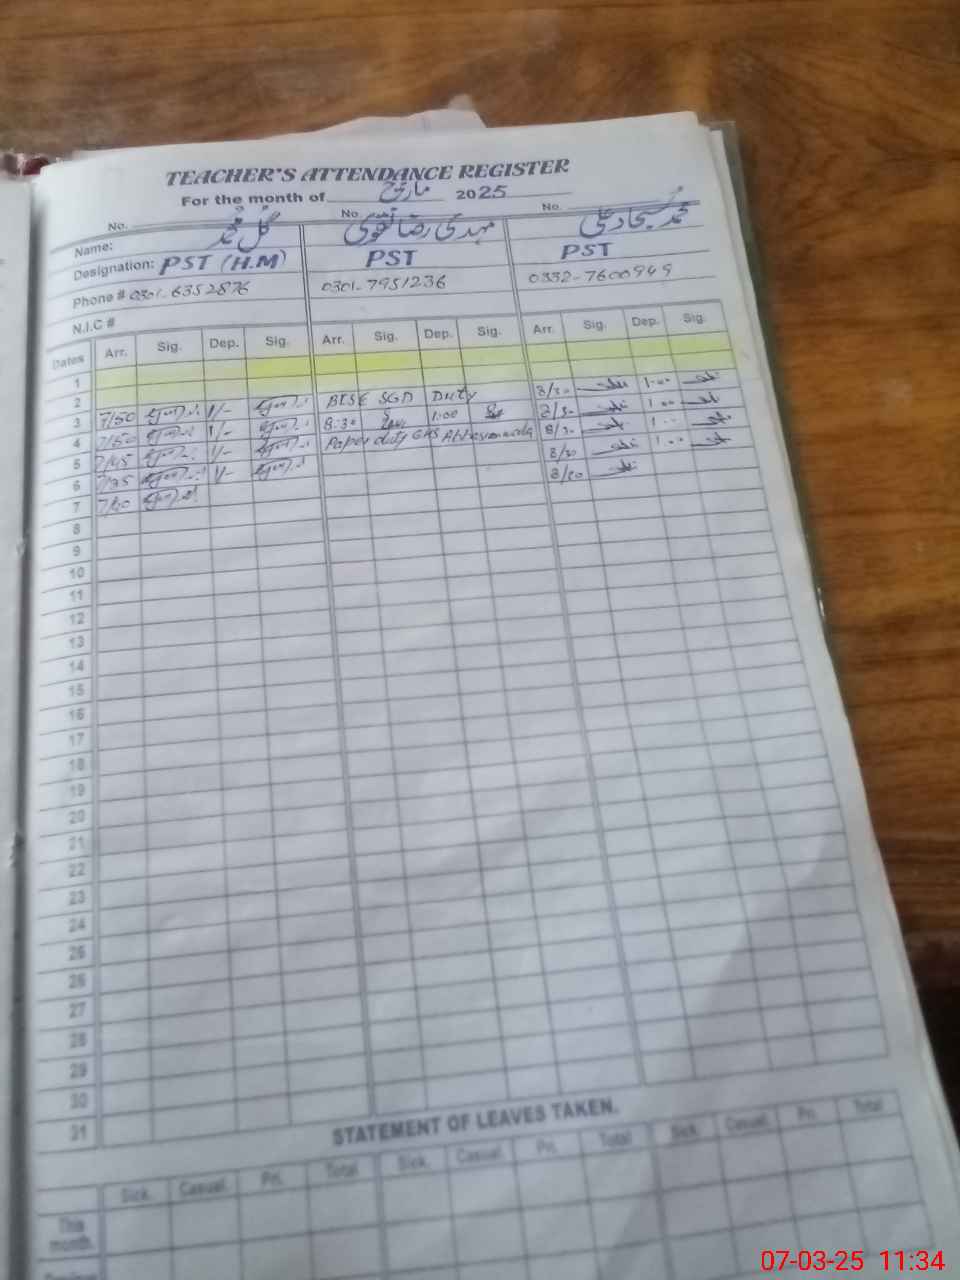 TEACHER'S ATTENDANCE REGISTER
For the month of مارچ 2025
No. No. No.
Name: گل محمد مہدی رضا نقوی محمد سجاد علی
Designation: PST (H.M) PST PST
Phone # 0301-6352876 0301-7951236 0332-7600949
N.I.C #
Dates Arr. Sig. Dep. Sig. Arr. Sig. Dep. Sig. Arr. Sig. Dep. Sig.
1
2
3 7/50 1/- BISE SGD Duty 8/30 1-00
4 7/50 1/- 8:30 1:00 8/30 1-00
5 7/45 1/- Paper duty GHS 8/30 1-00
6 7/35 1/- 8/30 1-00
7 7/40 8/20
8
9
10
11
12
13
14
15
16
17
18
19
20
21
22
23
24
25
26
27
28
29
30
31
STATEMENT OF LEAVES TAKEN.
Sick. Casual. Pri. Total Sick. Casual. Pri. Total Sick. Casual. Pri. Total
This month.
07-03-25 11:34